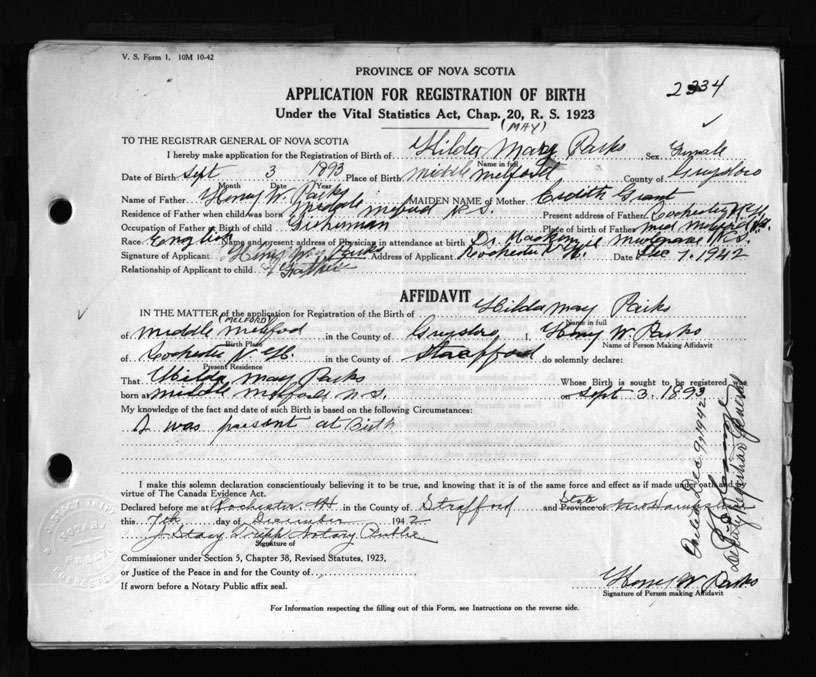 V. S. Form 1. 10M 10-42
PROVINCE OF NOVA SCOTIA
2334
APPLICATION FOR REGISTRATION OF BIRTH
Under the Vital Statistics Act, Chap. 20, R. S. 1923
(MAY)
TO THE REGISTRAR GENERAL OF NOVA SCOTIA
I hereby make application for the Registration of Birth of Hilda May Parks Sex Female
Name in full
Date of Birth Sept 3 1893 Place of Birth Middle Melford County of Guysboro
Month Date Year
Name of Father Henry W. Parks MAIDEN NAME of Mother Edith Grant
Residence of Father when child was born Melford N.S. Present address of Father Rochester N.H.
Occupation of Father at Birth of child Fisherman Place of birth of Father Mid Melford N.S.
Race English Name and present address of Physician in attendance at birth Dr. Mulgrave N.S.
Signature of Applicant Henry W Parks Address of Applicant Rochester N.H. Date Dec 7. 1942
Relationship of Applicant to child Father
AFFIDAVIT
IN THE MATTER of the application for Registration of the Birth of Hilda May Parks
(MELFORD) Name in full
of Middle Melford in the County of Guysboro I, Henry W. Parks
Birth Place Name of Person Making Affidavit
of Rochester N.H. in the County of Strafford do solemnly declare:
Present Residence
That Hilda May Parks Whose Birth is sought to be registered was
born at Middle Melford N.S. on Sept 3. 1893
My knowledge of the fact and date of such Birth is based on the following Circumstances:
I was present at Birth
I make this solemn declaration conscientiously believing it to be true, and knowing that it is of the same force and effect as if made under oath and by
virtue of The Canada Evidence Act.
Declared before me at Rochester NH in the County of Strafford and State Province of New Hampshire
this 7th day of December 1942
J Stacy Tripp Notary Public
Signature of
Commissioner under Section 5, Chapter 38, Revised Statutes, 1923,
or Justice of the Peace in and for the County of
If sworn before a Notary Public affix seal.
Henry W Parks
Signature of Person making Affidavit
For Information respecting the filling out of this Form, see Instructions on the reverse side.
Dec. 9, 1942
Deputy Registrar General